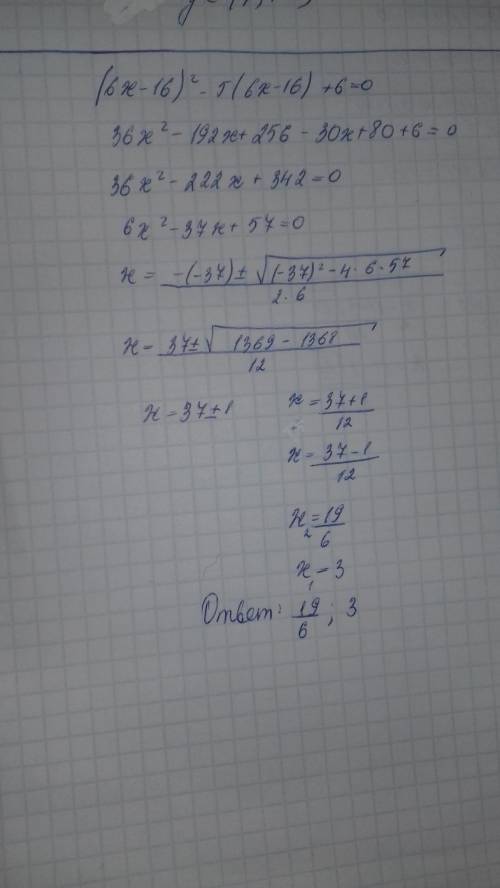 (6x-16)² - 5(6x-16) + 6 = 0
36x² - 192x + 256 - 30x + 80 + 6 = 0
36x² - 222x + 342 = 0
6x² - 37x + 57 = 0
x = (-(-37) ± √((-37)² - 4·6·57)) / (2·6)
x = (37 ± √(1369 - 1368)) / 12
x = 37 ± 1
x = (37+1)/12
x = (37-1)/12
x₂ = 19/6
x₁ = 3
Ответ: 19/6; 3